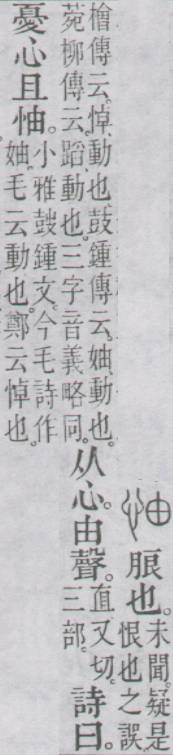 怞 朖也。未聞。疑是
恨也之誤。
从心。由聲。直又切。
三部。
詩曰。
憂心且怞。小雅鼓鍾文。今毛詩作
妯。毛云動也。鄭云悼也。
檜傳云。悼、動也。鼓鍾傳云。妯、動也。
菀柳傳云。蹈、動也。三字音義略同。